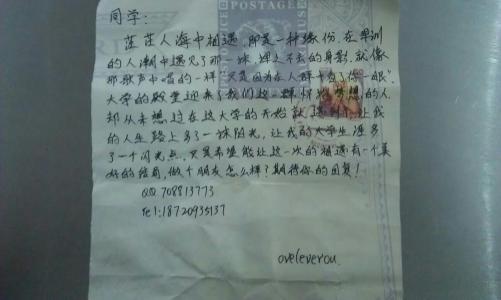 POSTAGE
同学:
茫茫人海中相遇,即是一种缘份,在军训
的人潮中遇见了那一抹挥之不去的身影,就像
那歌声中唱的一样"只是因为在人群中多了你一眼".
大学的殿堂迎来了我们这一群怀揣梦想的人,
却从未想过在这大学的开始就遇到了,让我
的人生路上多了一抹阳光,让我的大学生涯多
了一个闪光点,只是希望能让这一次的相遇有一个美
好的结局,做个朋友怎么样?期待你的回复!
QQ:708813773
Tel:18720935137